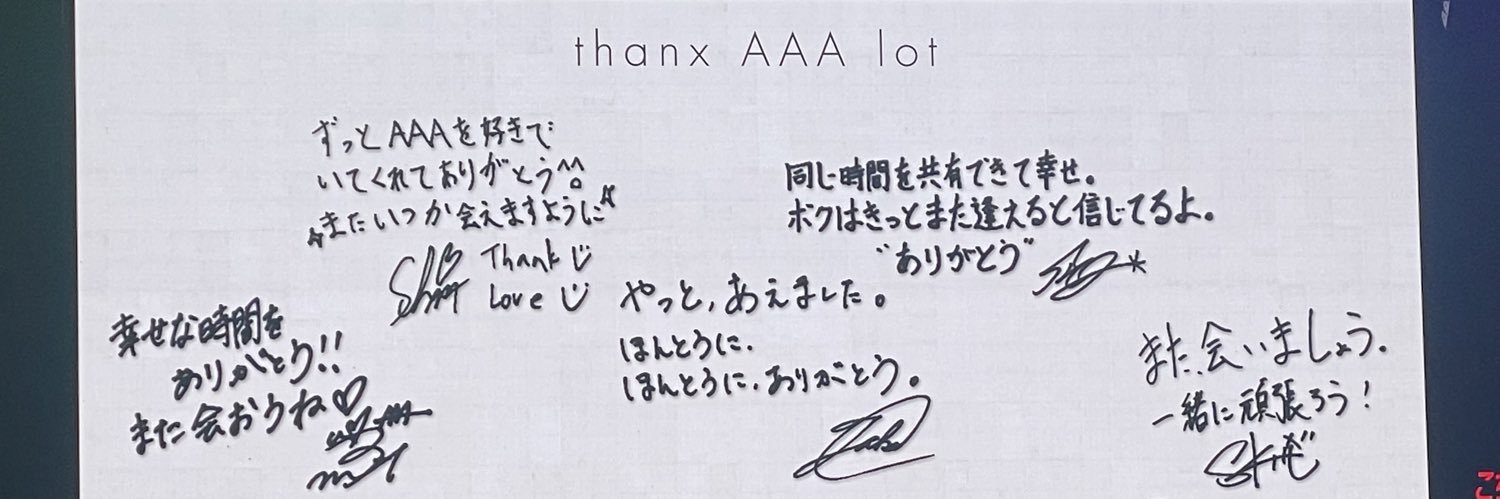 thanx AAA lot
ずっとAAAを好きで
いてくれてありがとう^^
またいつか会えますように
Thank
Love
同じ時間を共有できて幸せ。
ボクはきっとまた逢えると信じてるよ。
"ありがとう"
やっと、あえました。
ほんとうに、
ほんとうに、ありがとう。
幸せな時間を
ありがとう!!
また会おうね♡
また、会いましょう。
一緒に頑張ろう!